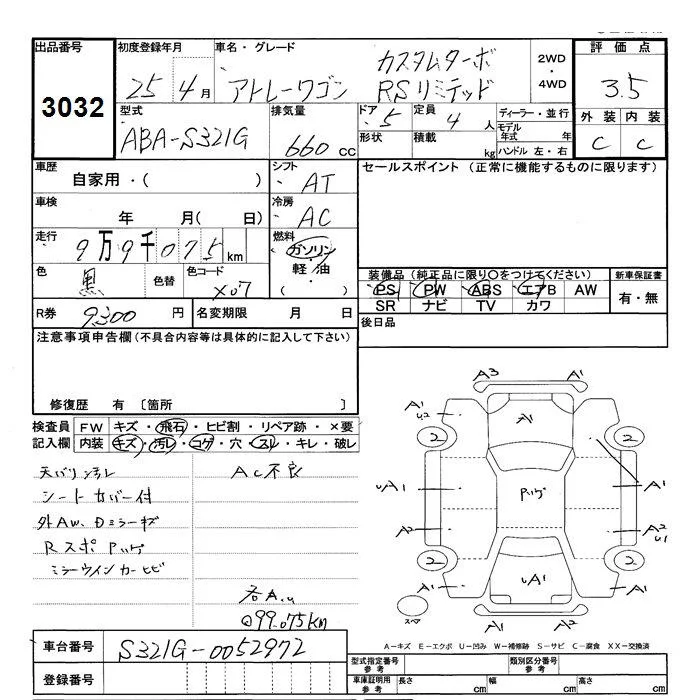 出品番号 3032
初度登録年月 25年 4月
車名・グレード アトレーワゴン カスタムターボ RSリミテッド
2WD ・ 4WD
評価点 3.5
外装 C 内装 C
型式 ABA-S321G
排気量 660cc
ドア 5 定員 4人
形状 積載 kg
ディーラー・並行
モデル年式 年
ハンドル 左・右
車歴 自家用・( )
シフト AT
セールスポイント (正常に機能するものに限ります)
車検 年 月( 日)
冷房 AC
走行 9万9千075km
燃料 ガソリン・軽油・( )
色 黒 色替 色コード X07
装備品 (純正品に限り○をつけてください) 新車保証書
PS PW ABS エアB AW 有・無
SR ナビ TV カワ
R券 9,300円 名変期限 月 日
後日品
注意事項申告欄(不具合内容等は具体的に記入して下さい)
修復歴 有 〔箇所 〕
検査員 FW キズ・飛石・ヒビ割・リペア跡・×要
記入欄 内装 キズ・汚レ・コゲ・穴・スレ・キレ・破レ
天バリ汚レ AC不良
シートカバー付
外AW、Dミラーキズ
Rスポ Pハゲ
ミラーウインカーヒビ
各A.u
@99.075km
A3 A1
A1 U2 A1 A1
2 2
uA1 Pハゲ A1
A2 A2 u1
2 2
A1 uA1 A1
スペア A2 A1
A-キズ E-エクボ U-凹み W-補修跡 S-サビ C-腐食 XX-交換済
車台番号 S321G-0052972
登録番号
型式指定番号 参考 類別区分番号 参考
車庫証明用 参考 長さ cm 幅 cm 高さ cm